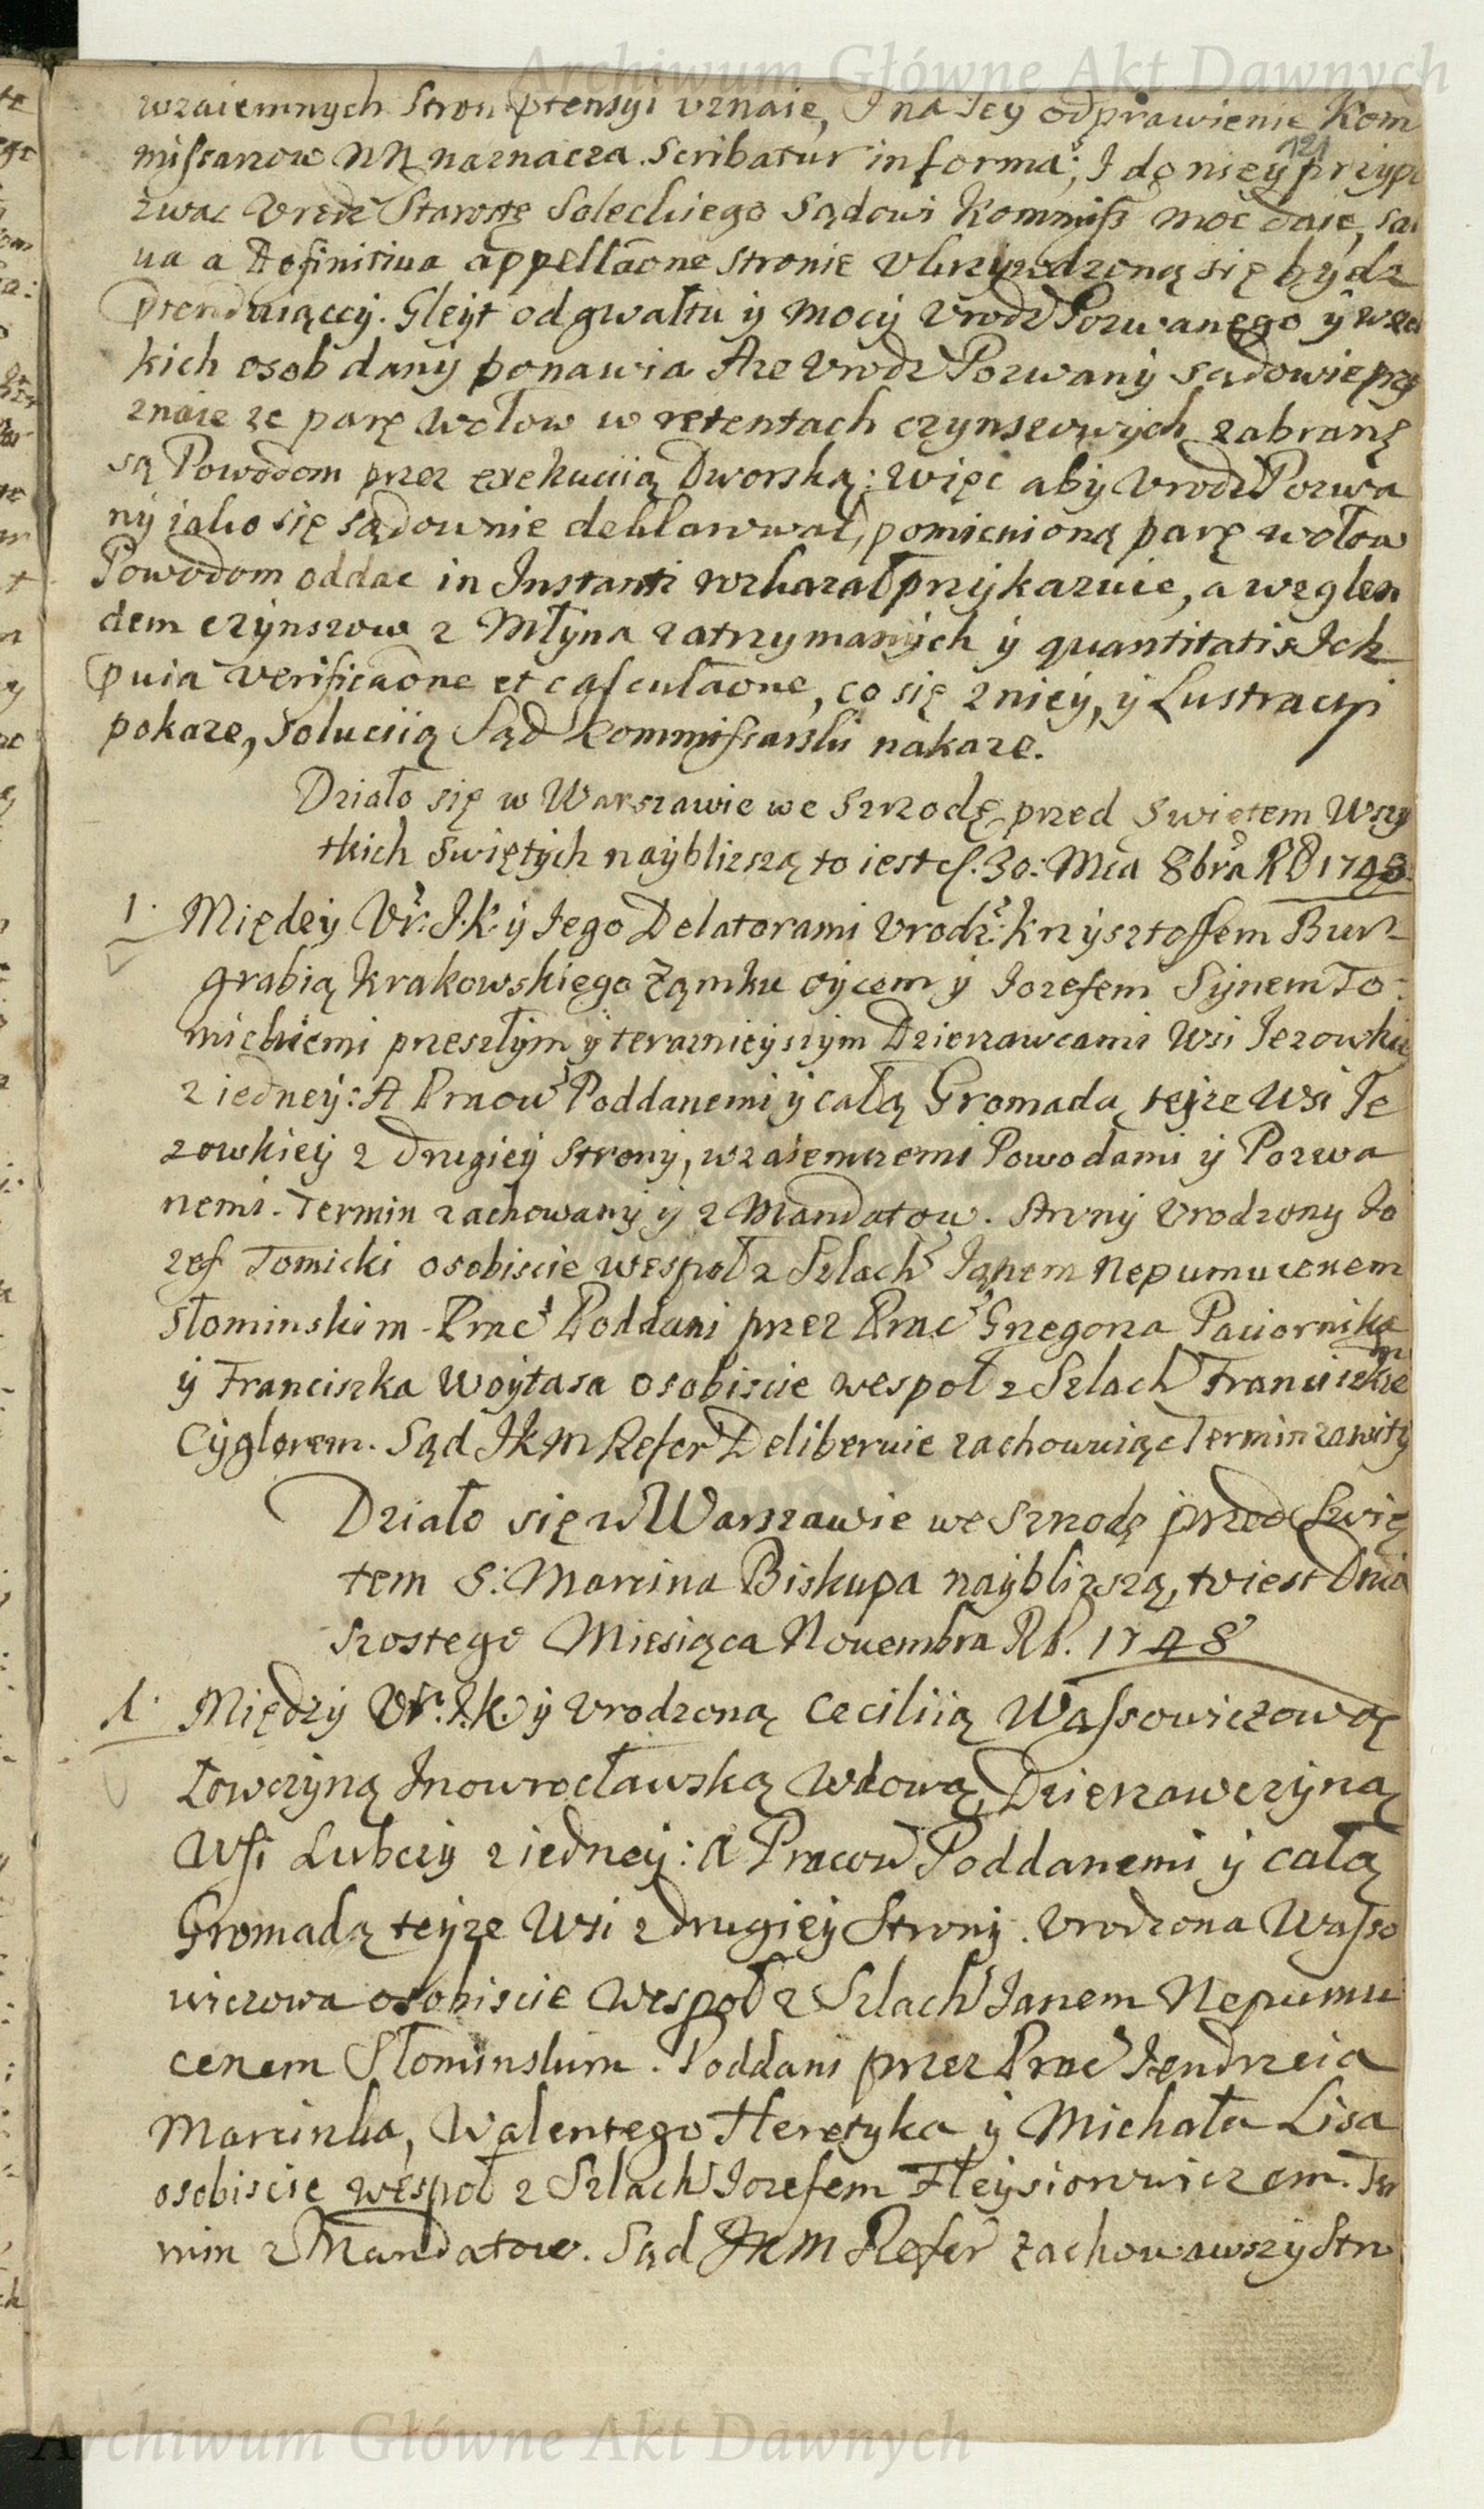 Archiwum Główne Akt Dawnych
wzaiemnych Stron ptensyi vznaie, I na Iey odprawienie Kom
121
missarzow NN naznacza. Scribatur in forma; I do niey przypo
zwac Vrodz Starostę Soleckiego Sądowi Kommiss moc daie, sal
ua a Definitiua appellaone stronie vkrzywdzoną się bydz
ptenduiąccy. Gleyt od gwałtu y mocy Vrodz Pozwanego y wszel
kich osob dany ponawia Aze Vrodz Pozwany sądowie przy
znaie ze parę wołow w retentach czynszowych zabranę
są Powodom przez exekuciią Dworską: więc aby Vrodz Pozwa
ny iako się sądownie deklarował, pomienioną parę wołow
Powodom oddac in Instanti rozkazał przykazuie, a wzglen
dem czynszow z Młyna zatrzymanych y quantitatis Ich
puia verificaone et calculaone, co się z niey, y Lustracyi
pokaze, soluciią Sąd Kommissarski nakaze.
Działo się w Warszawie we Szrodę przed Swiętem Wszy
tkich Swiętych nayblizszą to iest d. 30: Mca 8bra RP 1748
1. Międey Vr: I.K. y Iego Delatorami Vrodz: Krzysztoffem Bur
grabią Krakowskiego Zamku oycem y Iozefem Synem To
mickiemi przeszłym y teraznieyszym Dzierzawcami Wsi Iezowkiey
z iedney: A Pracow Poddanemi y całą Gromadą teyze Wsi Ie
zowkiey z drugiey Strony, wzaiemnemi Powodami y Pozwa
nemi. Termin zachowany y z Mandatow. Strony Vrodzony Io
zef Tomicki osobiscie wespoł z Szlach Ianem Nepumucenem
Słominskim Prac Poddani przez Prac Grzegorza Paciornika
y Franciszka Woytasa osobiscie wespoł z Szlach Franciszkiem
Cyglerem. Sąd IKM Refer Deliberuie zachowuiąc Termin zawity
Działo się w Warszawie we Szrodę przed Swię
tem S: Marcina Biskupa nayblizszą, to iest Dnia
szostego Miesiąca Nouembra RP. 1748
1. Między Vr. I.K. y Vrodzoną Ceciliią Wassowiczową
Łowczyną Inowrocławską Wdową, Dzierzawczyną
Wsi Lubczy z iedney: A Pracow Poddanemi y całą
Gromadą teyze Wsi z drugiey Strony. Vrodzona Wasso
wiczowa osobiscie wespoł z Szlach Ianem Nepumu
cenem Słominskim. Poddani przez Prac Iendrzeia
Marcinka, Walentego Heretyka y Michała Lisa
osobiscie wespoł z Szlach Iozefem Fleysierowiczem. Ter
min z Mandatow. Sąd IKM Refer zachowawszy Stro
Archiwum Główne Akt Dawnych